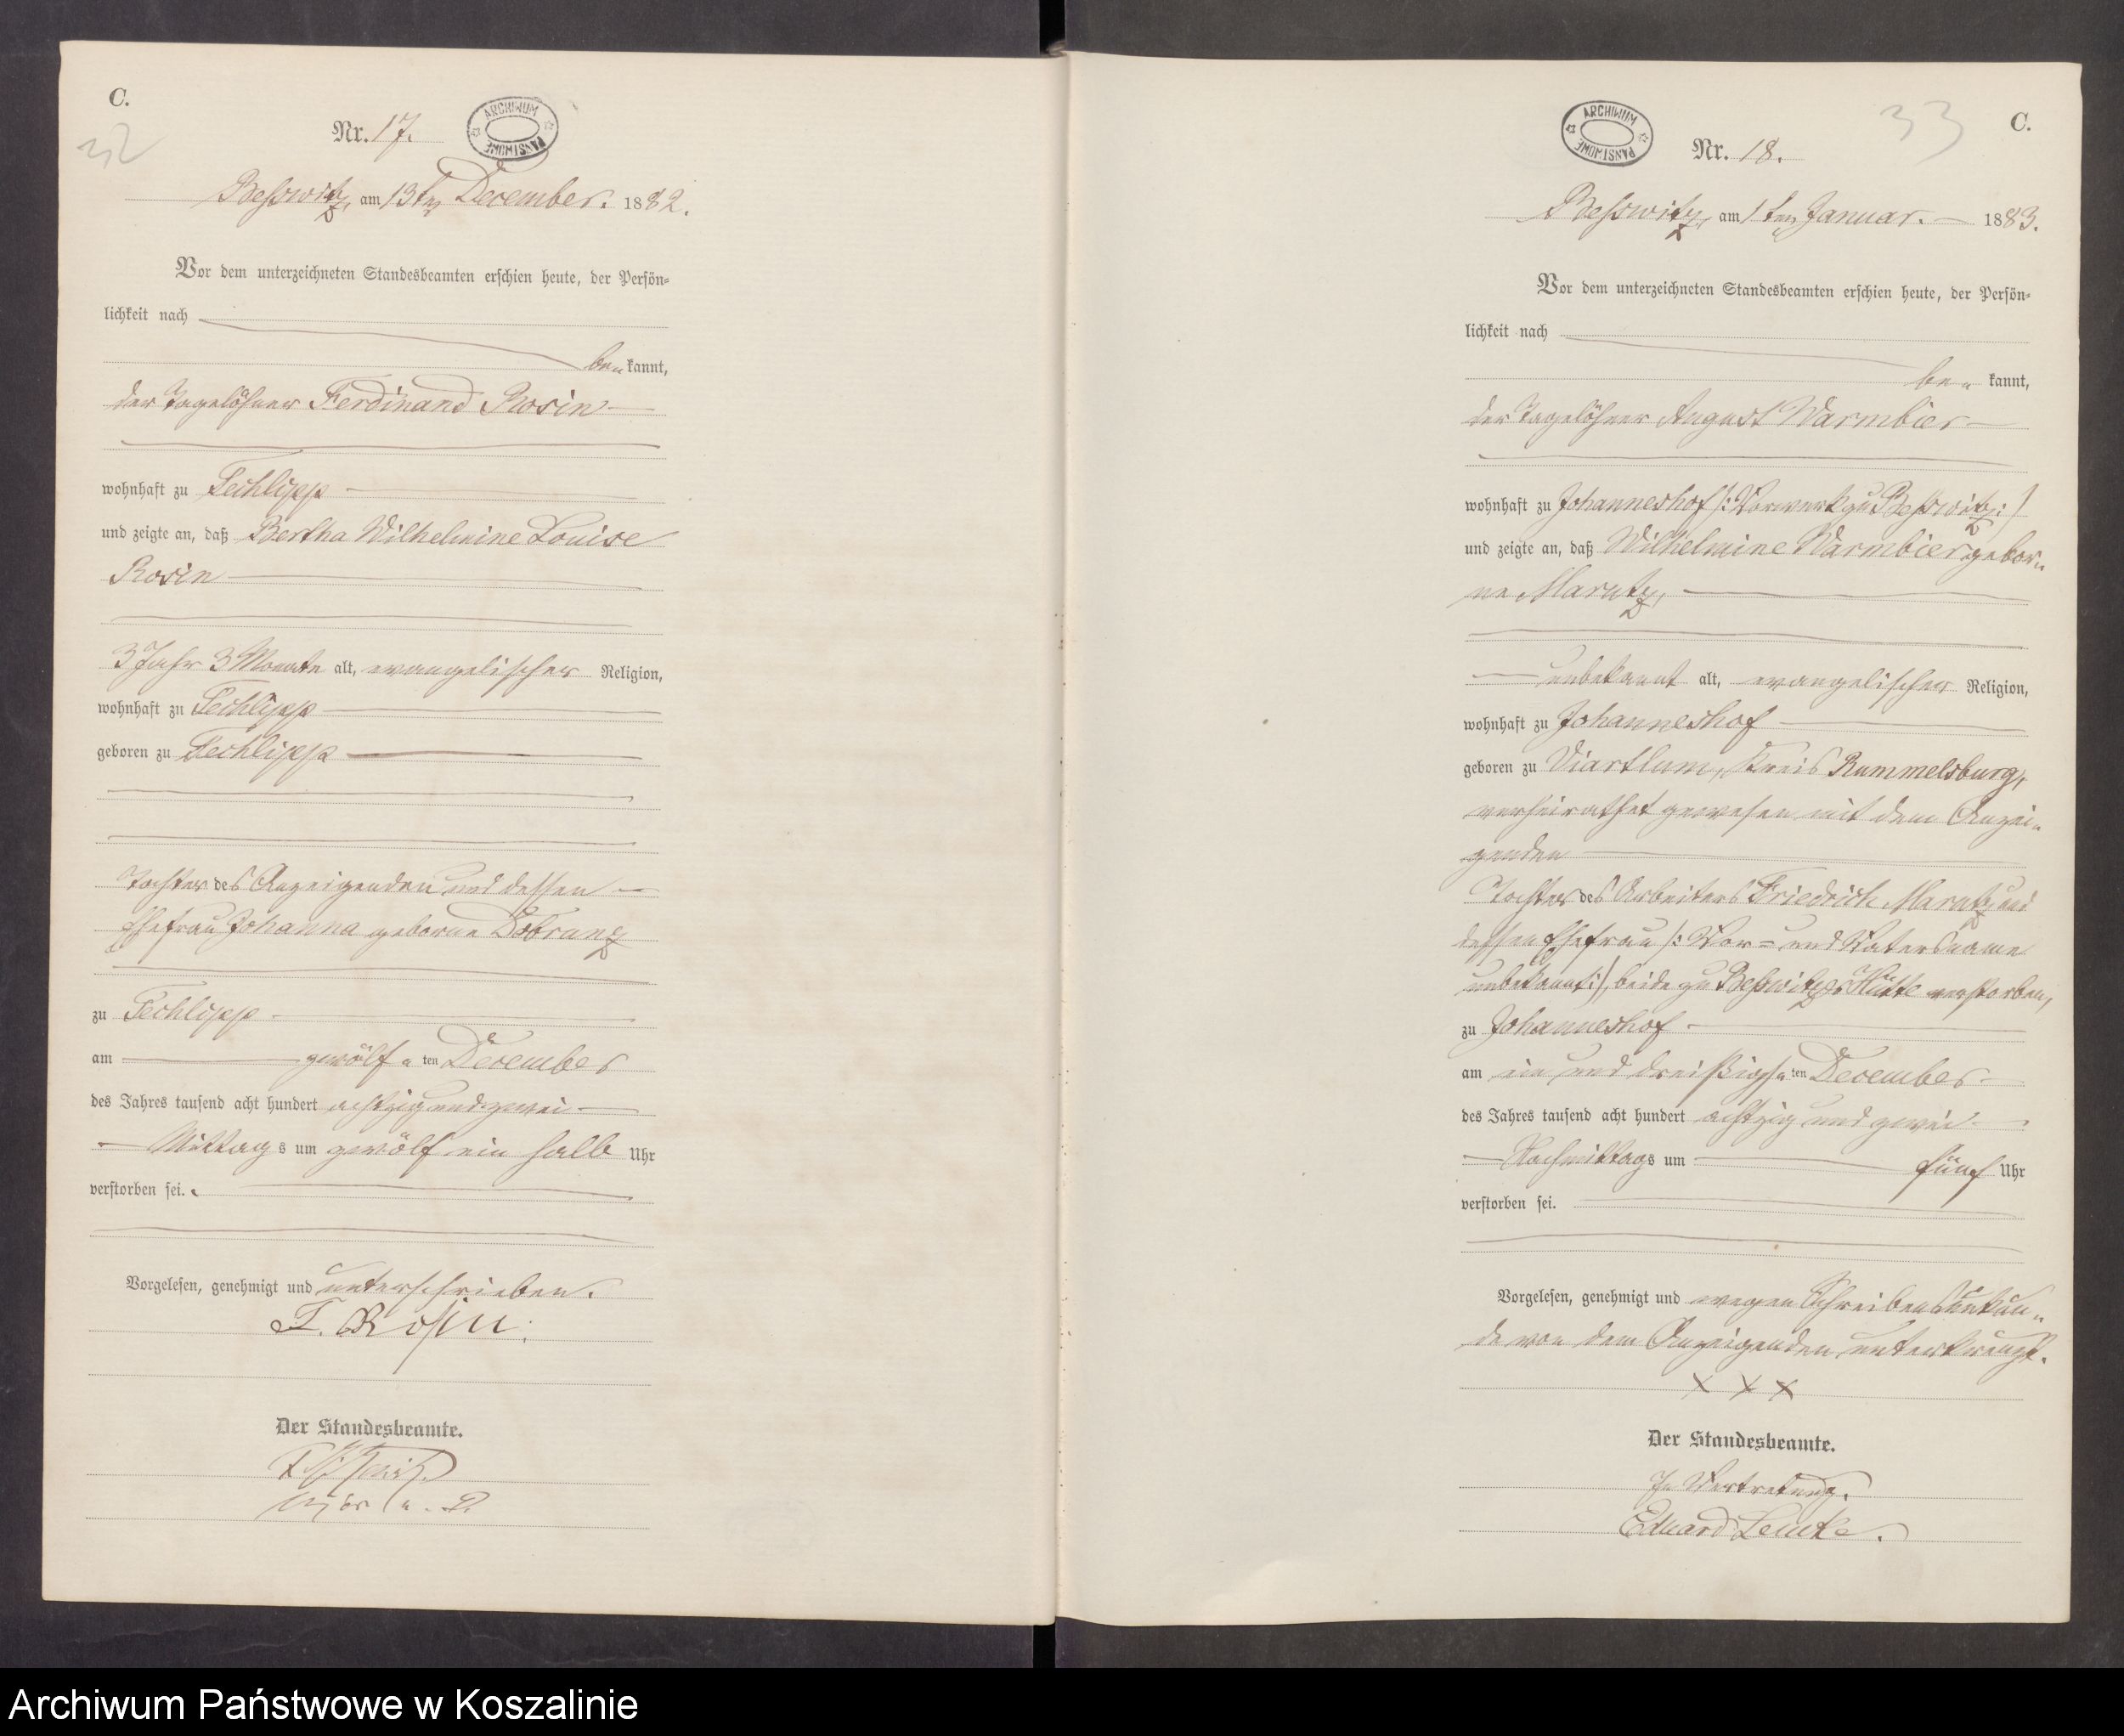 C.
32
Nr. 17.
ARCHIWUM PAŃSTWOWE
Beßwitz, am 13ten December. 1882.
Vor dem unterzeichneten Standesbeamten erschien heute, der Persön-
lichkeit nach
be= kannt,
der Tagelöhner Ferdinand Rosin
wohnhaft zu Techlipp
und zeigte an, daß Bertha Wilhelmine Louise
Rosin
3 Jahr 3 Monate alt, evangelischer Religion,
wohnhaft zu Techlipp
geboren zu Techlipp
Tochter des Anzeigenden und dessen
Ehefrau Johanna geborne Dobranz
zu Techlipp
am zwölf=ten December
des Jahres tausend acht hundert achtzig und zwei
Mittags um zwölf ein halb Uhr
verstorben sei.
Vorgelesen, genehmigt und unterschrieben.
F. Rosin.
Der Standesbeamte.
a. D.
33
C.
ARCHIWUM PAŃSTWOWE
Nr. 18.
Beßwitz, am 1ten Januar. 1883.
Vor dem unterzeichneten Standesbeamten erschien heute, der Persön-
lichkeit nach
be= kannt,
der Tagelöhner August Warmbier
wohnhaft zu Johanneshof /: Vorwerk zu Beßwitz :/
und zeigte an, daß Wilhelmine Warmbier gebor=
ne Marutz,
unbekannt alt, evangelischer Religion,
wohnhaft zu Johanneshof
geboren zu Viartlum, Kreis Rummelsburg,
verheirathet gewesen mit dem Anzei=
genden
Tochter des Arbeiters Friedrich Marutz und
dessen Ehefrau /: Vor= und Vatersname
unbekannt :/, beide zu Beßwitzer Hütte verstorben,
zu Johanneshof
am ein und dreißigs=ten December
des Jahres tausend acht hundert achtzig und zwei
Nachmittags um fünf Uhr
verstorben sei.
Vorgelesen, genehmigt und wegen Schreibensunkun=
de von dem Anzeigenden unterkreuzt.
x x x
Der Standesbeamte.
In Vertretung.
Eduard Lemke.
Archiwum Państwowe w Koszalinie